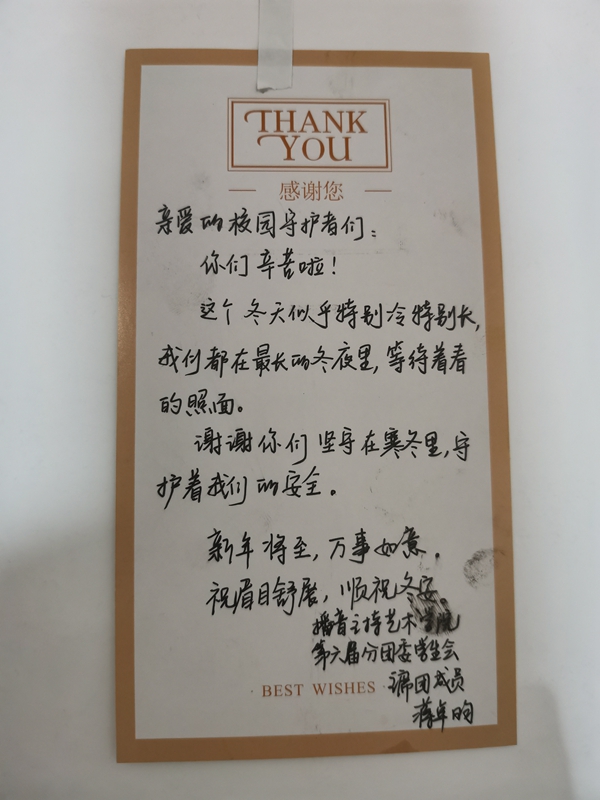 THANK
YOU
感谢您
亲爱的校园守护者们:
你们辛苦啦!
这个冬天似乎特别冷特别长,
我们都在最长的冬夜里,等待着春
的照面。
谢谢你们坚守在寒冬里,守
护着我们的安全。
新年将至,万事如意。
祝眉目舒展,顺祝冬安。
播音主持艺术学院
第六届分团委学生会
席团成员
BEST WISHES
蒋年昀